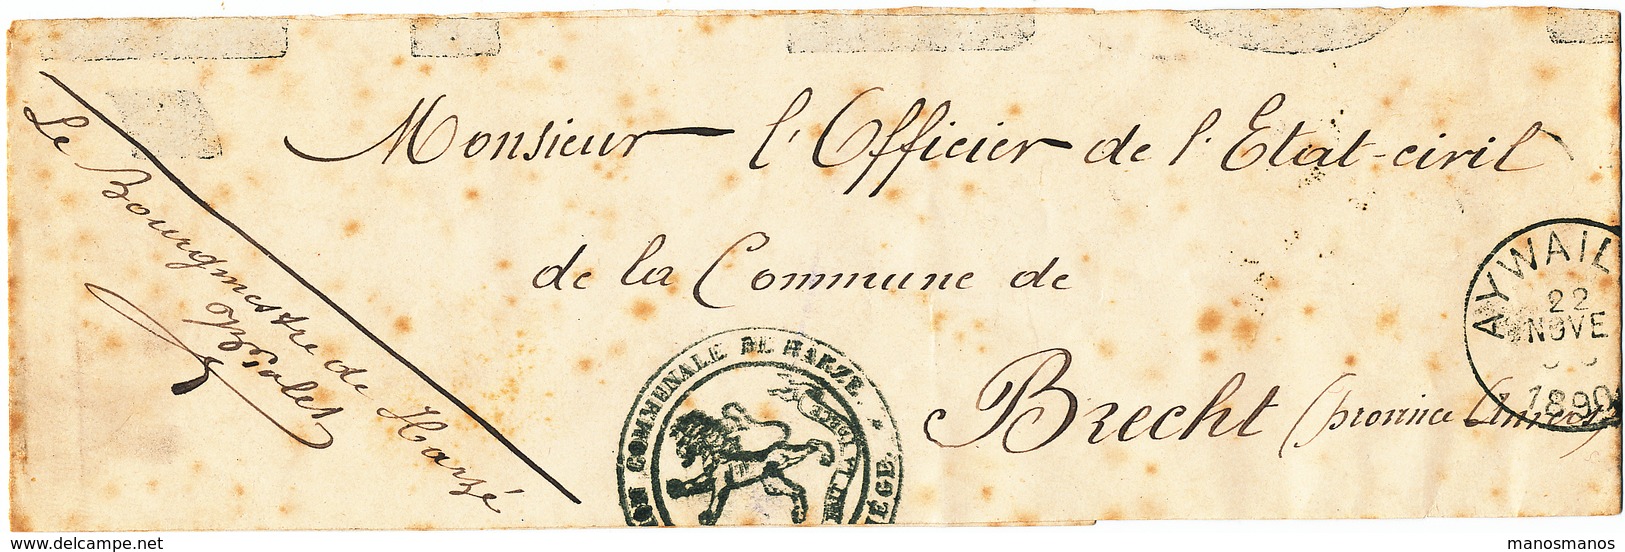 Monsieur l'Officier de l'Etat-civil
de la Commune de
Brecht (province Anvers)
Le Bourgmestre de Harzé
AYWAIL
22
NOVE
1890
ION COMMUNALE DE HARZE. * ÉGE.
www.delcampe.net
manosmanos